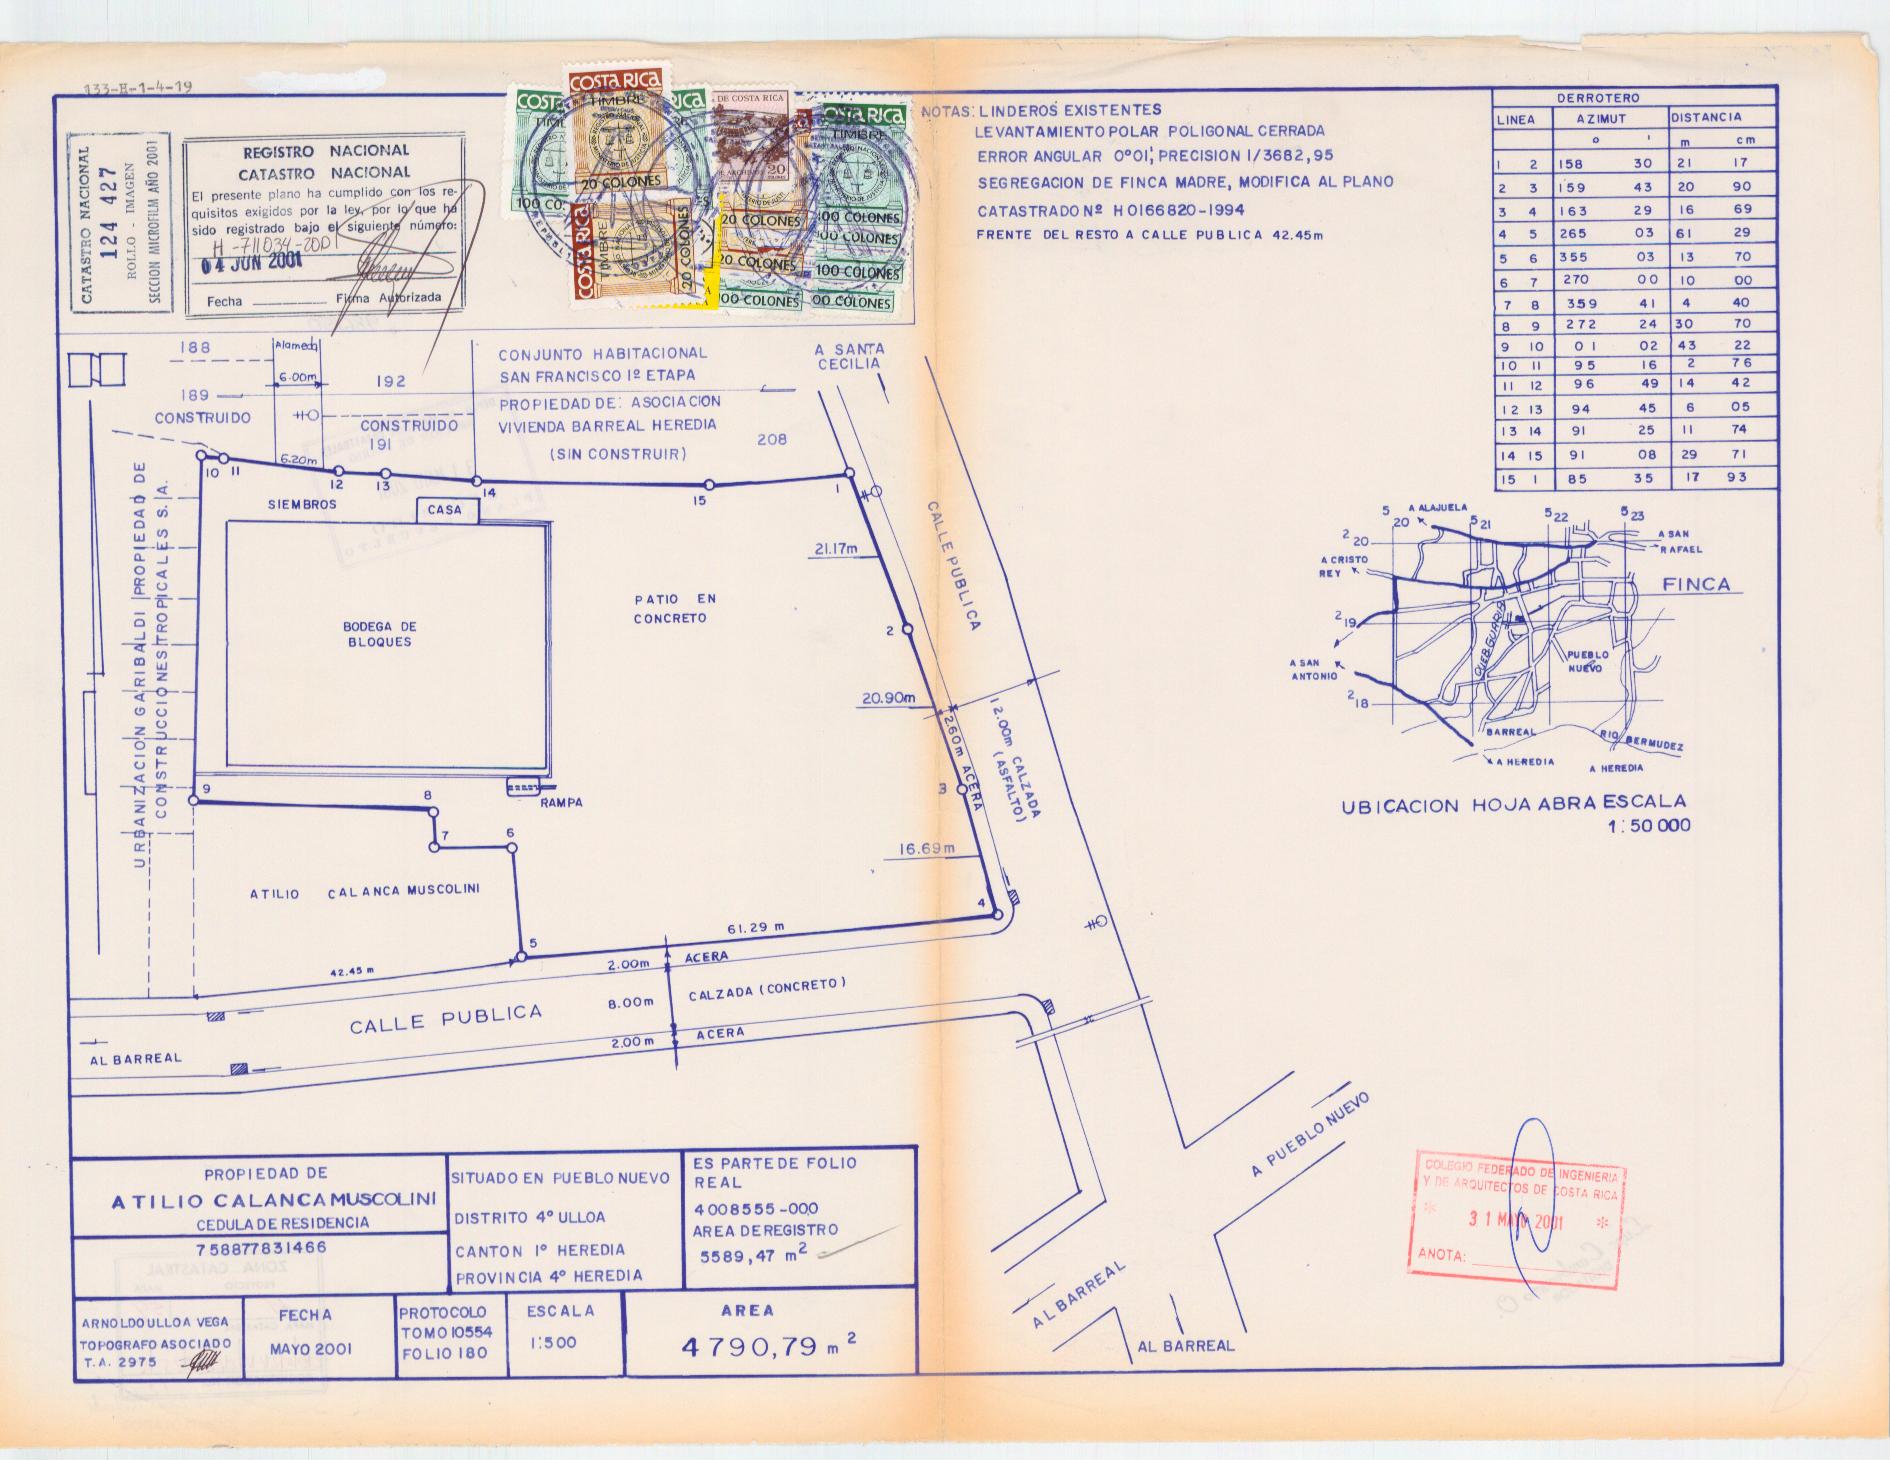 133-H-1-4-19
CATASTRO NACIONAL
124 427
ROLLO - IMAGEN
SECCION MICROFILM AÑO 2001
REGISTRO NACIONAL
CATASTRO NACIONAL
El presente plano ha cumplido con los re-
quisitos exigidos por la ley, por lo que ha
sido registrado bajo el siguiente número:
H-711034-2001
04 JUN 2001
Fecha Firma Autorizada
COSTA RICA
TIMBRE
20 COLONES
COSTA RICA
TIMBRE
20 COLONES
DE COSTA RICA
20
20 COLONES
20 COLONES
100 COLONES
COSTA RICA
TIMBRE
100 COLONES
100 COLONES
100 COLONES
NOTAS: LINDEROS EXISTENTES
LEVANTAMIENTO POLAR POLIGONAL CERRADA
ERROR ANGULAR 0°01', PRECISION 1/3682,95
SEGREGACION DE FINCA MADRE, MODIFICA AL PLANO
CATASTRADO Nº H 0166820-1994
FRENTE DEL RESTO A CALLE PUBLICA 42.45m
DERROTERO
LINEA AZIMUT DISTANCIA
o ' m cm
1 2 158 30 21 17
2 3 159 43 20 90
3 4 163 29 16 69
4 5 265 03 61 29
5 6 355 03 13 70
6 7 270 00 10 00
7 8 359 41 4 40
8 9 272 24 30 70
9 10 01 02 43 22
10 11 95 16 2 76
11 12 96 49 14 42
12 13 94 45 6 05
13 14 91 25 11 74
14 15 91 08 29 71
15 1 85 35 17 93
188
Alameda
6.00m
192
189
CONSTRUIDO
CONSTRUIDO
191
6.20m
CONJUNTO HABITACIONAL
SAN FRANCISCO 1º ETAPA
PROPIEDAD DE: ASOCIACION
VIVIENDA BARREAL HEREDIA
(SIN CONSTRUIR)
208
A SANTA
CECILIA
10 11 12 13 14 15 1
SIEMBROS
CASA
URBANIZACION GARIBALDI PROPIEDAD DE
CONSTRUCCIONES TROPICALES S.A.
BODEGA DE
BLOQUES
PATIO EN
CONCRETO
21.17m
2
20.90m
3
16.69m
4
CALLE PUBLICA
2.60m ACERA
12.00m CALZADA
(ASFALTO)
RAMPA
9
8
7
6
5
ATILIO CALANCA MUSCOLINI
61.29 m
42.45 m
2.00m ACERA
8.00m CALZADA (CONCRETO)
2.00m ACERA
CALLE PUBLICA
AL BARREAL
A PUEBLO NUEVO
AL BARREAL
AL BARREAL
A ALAJUELA
5 20 5 21 5 22 5 23
2 20
A SAN
RAFAEL
A CRISTO
REY
FINCA
2 19
QUEB GUARIA
A SAN
ANTONIO
PUEBLO
NUEVO
2 18
BARREAL
RIO BERMUDEZ
A HEREDIA
A HEREDIA
UBICACION HOJA ABRA ESCALA
1:50 000
PROPIEDAD DE
ATILIO CALANCA MUSCOLINI
CEDULA DE RESIDENCIA
758877831466
SITUADO EN PUEBLO NUEVO
DISTRITO 4º ULLOA
CANTON 1º HEREDIA
PROVINCIA 4º HEREDIA
ES PARTE DE FOLIO
REAL
4008555-000
AREA DE REGISTRO
5589,47 m2
ARNOLDO ULLOA VEGA
TOPOGRAFO ASOCIADO
T.A. 2975
FECHA
MAYO 2001
PROTOCOLO
TOMO 10554
FOLIO 180
ESCALA
1:500
AREA
4790,79 m2
COLEGIO FEDERADO DE INGENIERIA
Y DE ARQUITECTOS DE COSTA RICA
* 31 MAYO 2001 *
ANOTA: